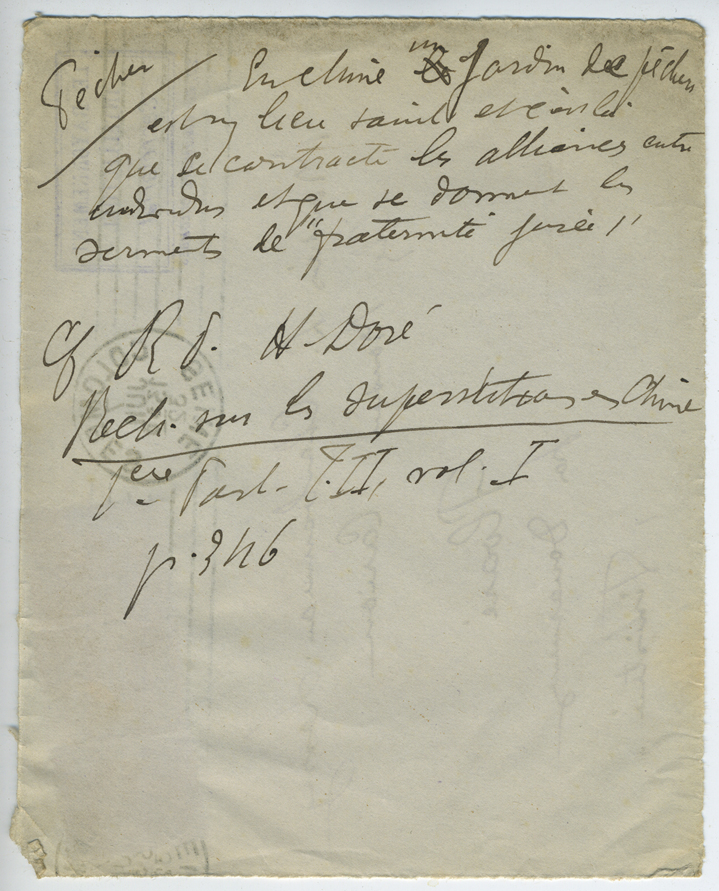 Pêcher
En Chine un Jardin de pêchers
est un lieu saint et c'est là
que se contracte les alliances entre
individus et que se donnent les
serments de "fraternité jurée"
Cf R P. H Doré
Rech. sur les superstitions en Chine
1ère Part. T.II, vol. I
p. 346